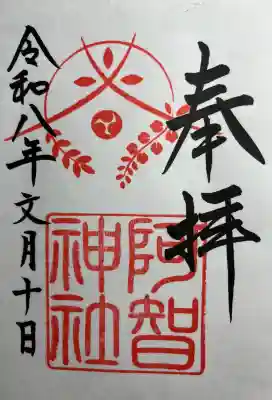 奉拝
阿智
神社
令和八年文月十日